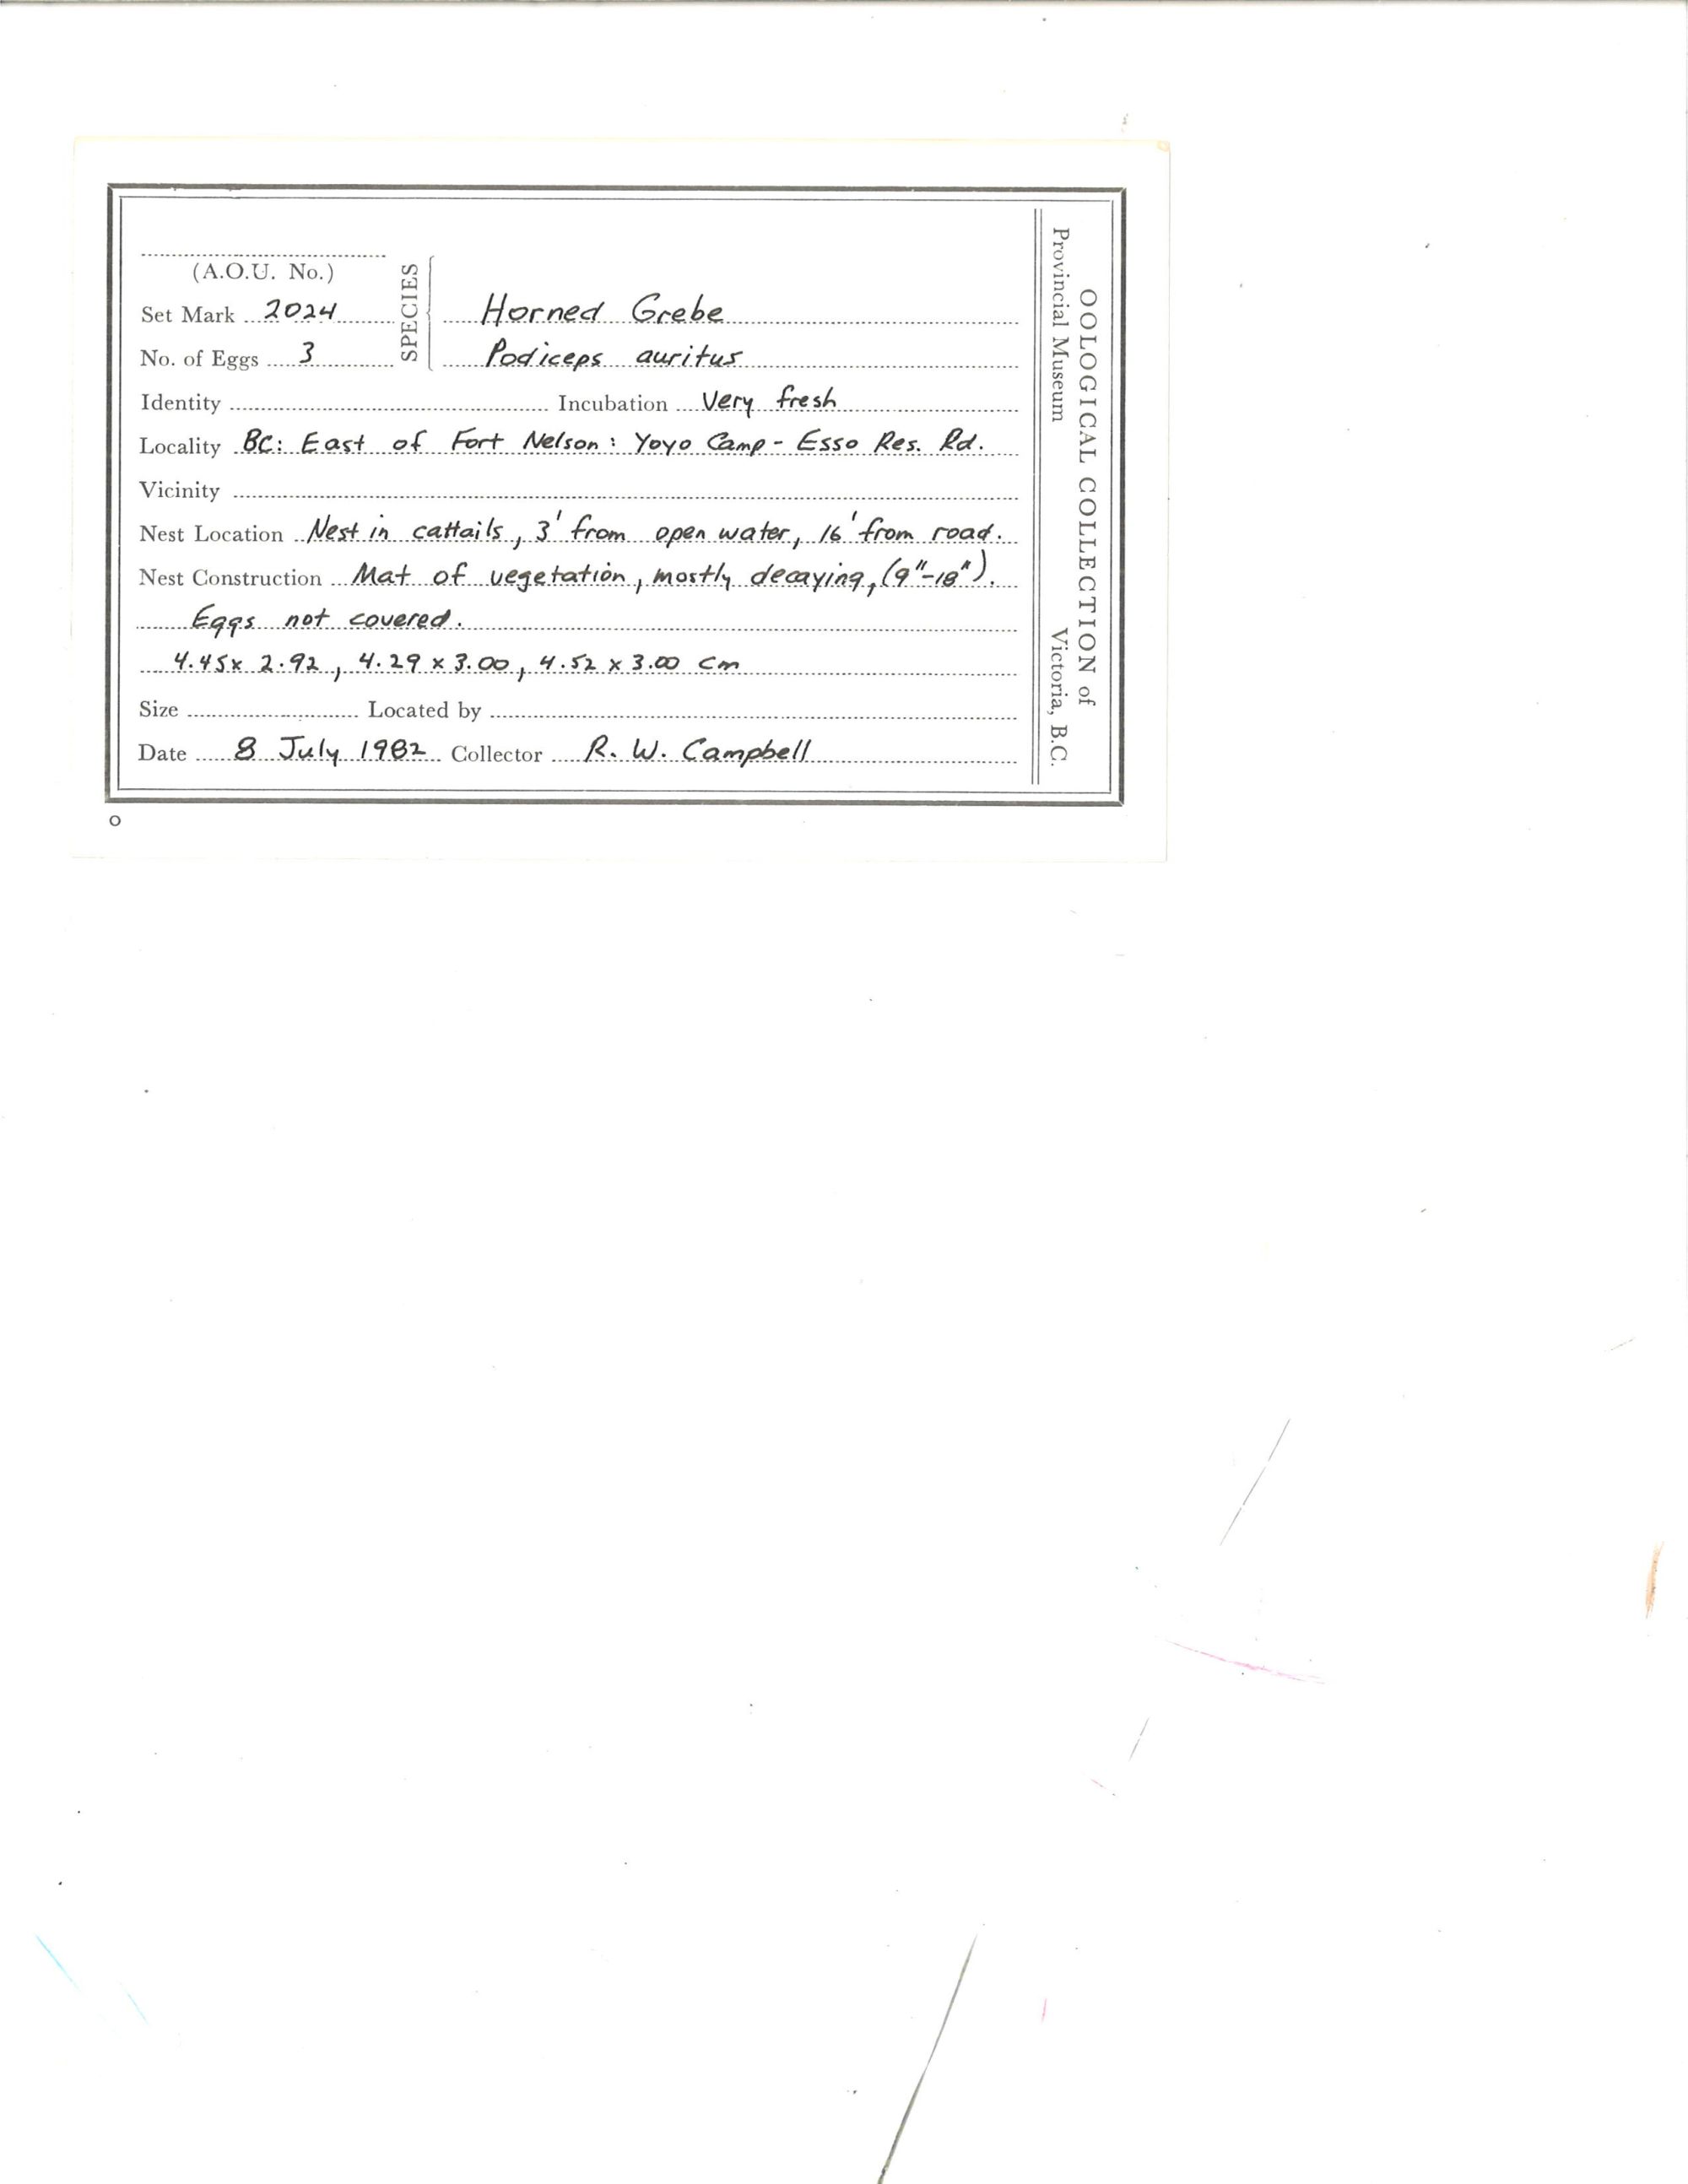 (A.O.U. No.)
SPECIES
Set Mark 2024
Horned Grebe
No. of Eggs 3
Podiceps auritus
Identity Incubation Very fresh
Locality BC: East of Fort Nelson: Yoyo Camp - Esso Res. Rd.
Vicinity
Nest Location Nest in cattails, 3' from open water, 16' from road.
Nest Construction Mat of vegetation, mostly decaying, (9"-18").
Eggs not covered.
4.45 x 2.92, 4.29 x 3.00, 4.52 x 3.00 cm
Size Located by
Date 8 July 1982 Collector R. W. Campbell
OOLOGICAL COLLECTION of
Provincial Museum Victoria, B.C.